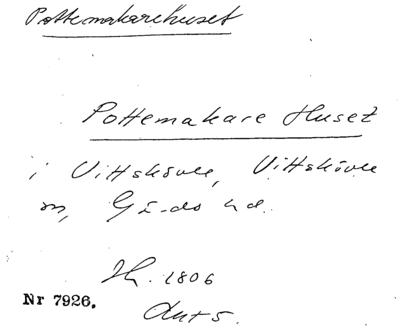 Pottemakarehuset
Pottemakare Huset
i Vittskövle, Vittskövle
sn, Gärds hd.
1806
Nr 7926.